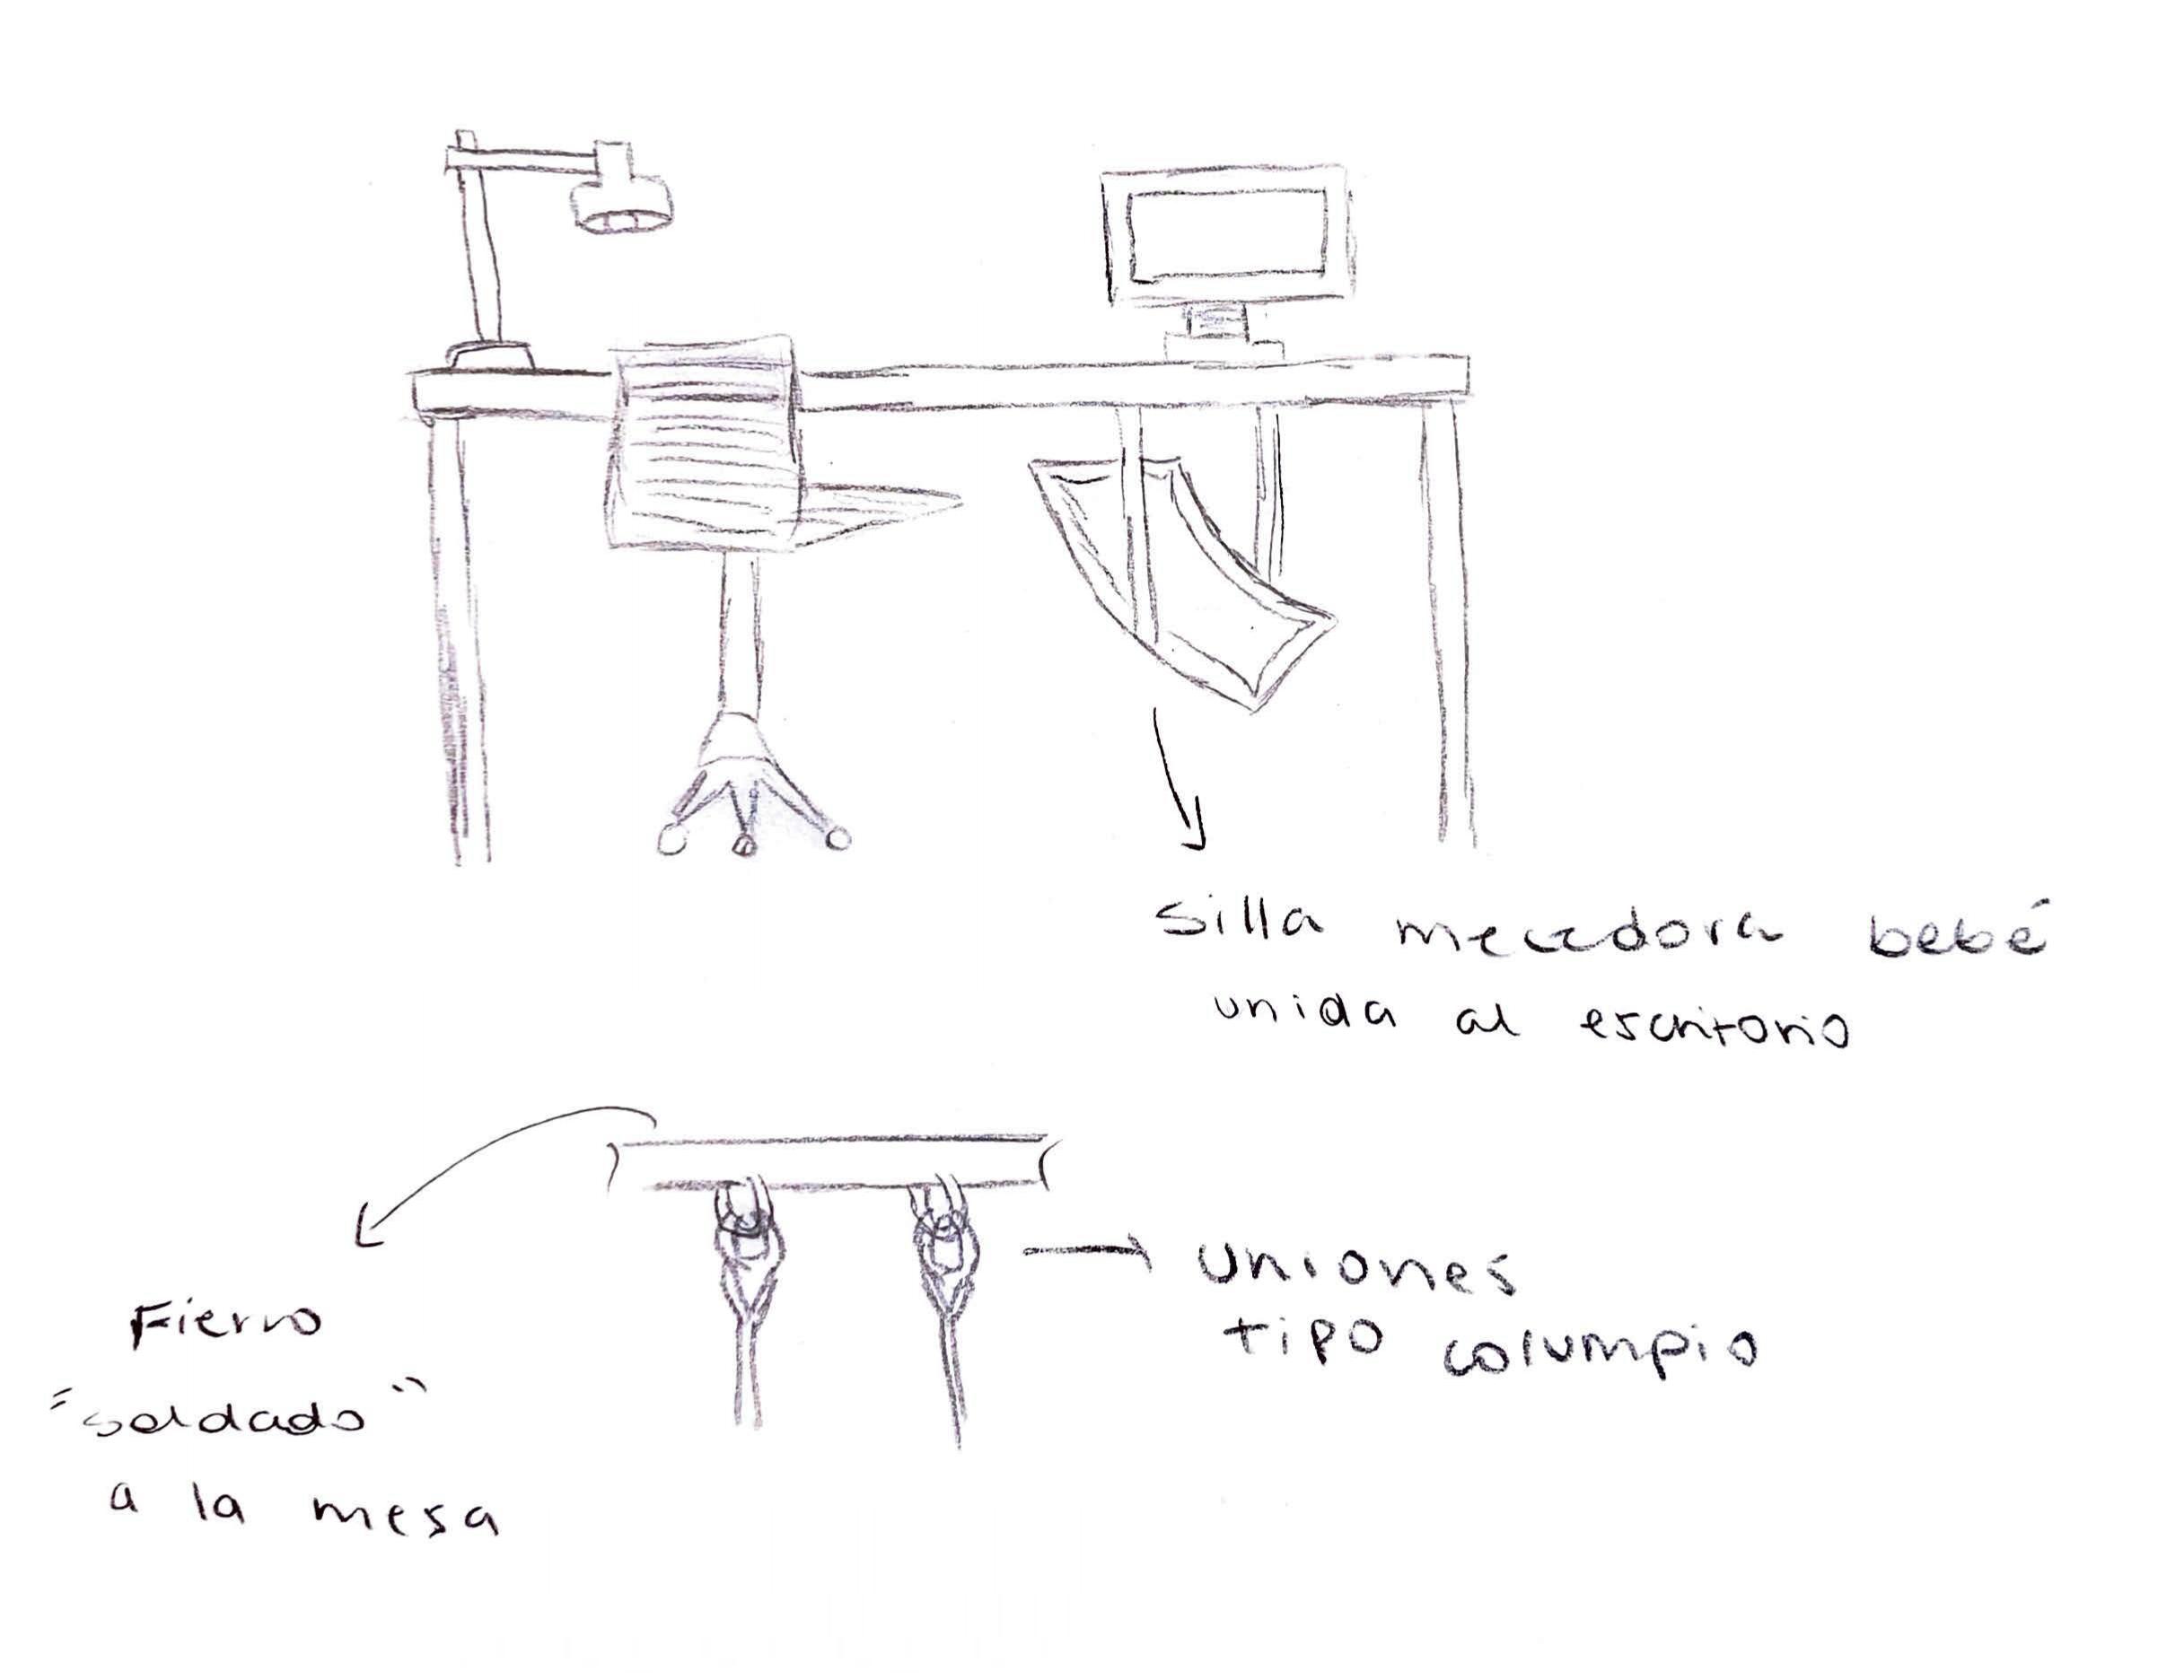 silla mecedora bebé
unida al escritorio
Fierro
"soldado"
a la mesa
uniones
tipo columpio